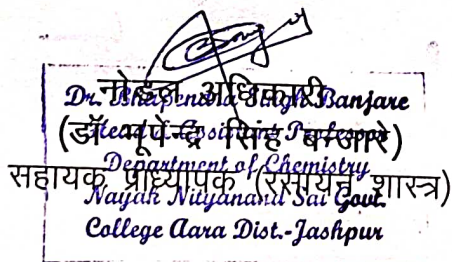 नोडल अधिकारी
Dr. Bhupendra Singh Banjare
(डॉ भूपेन्द्र सिंह बन्जारे)
Head & Assistant Professor
Department of Chemistry
सहायक प्राध्यापक (रसायन शास्त्र)
Nayak Nityanand Sai Govt.
College Aara Dist.-Jashpur